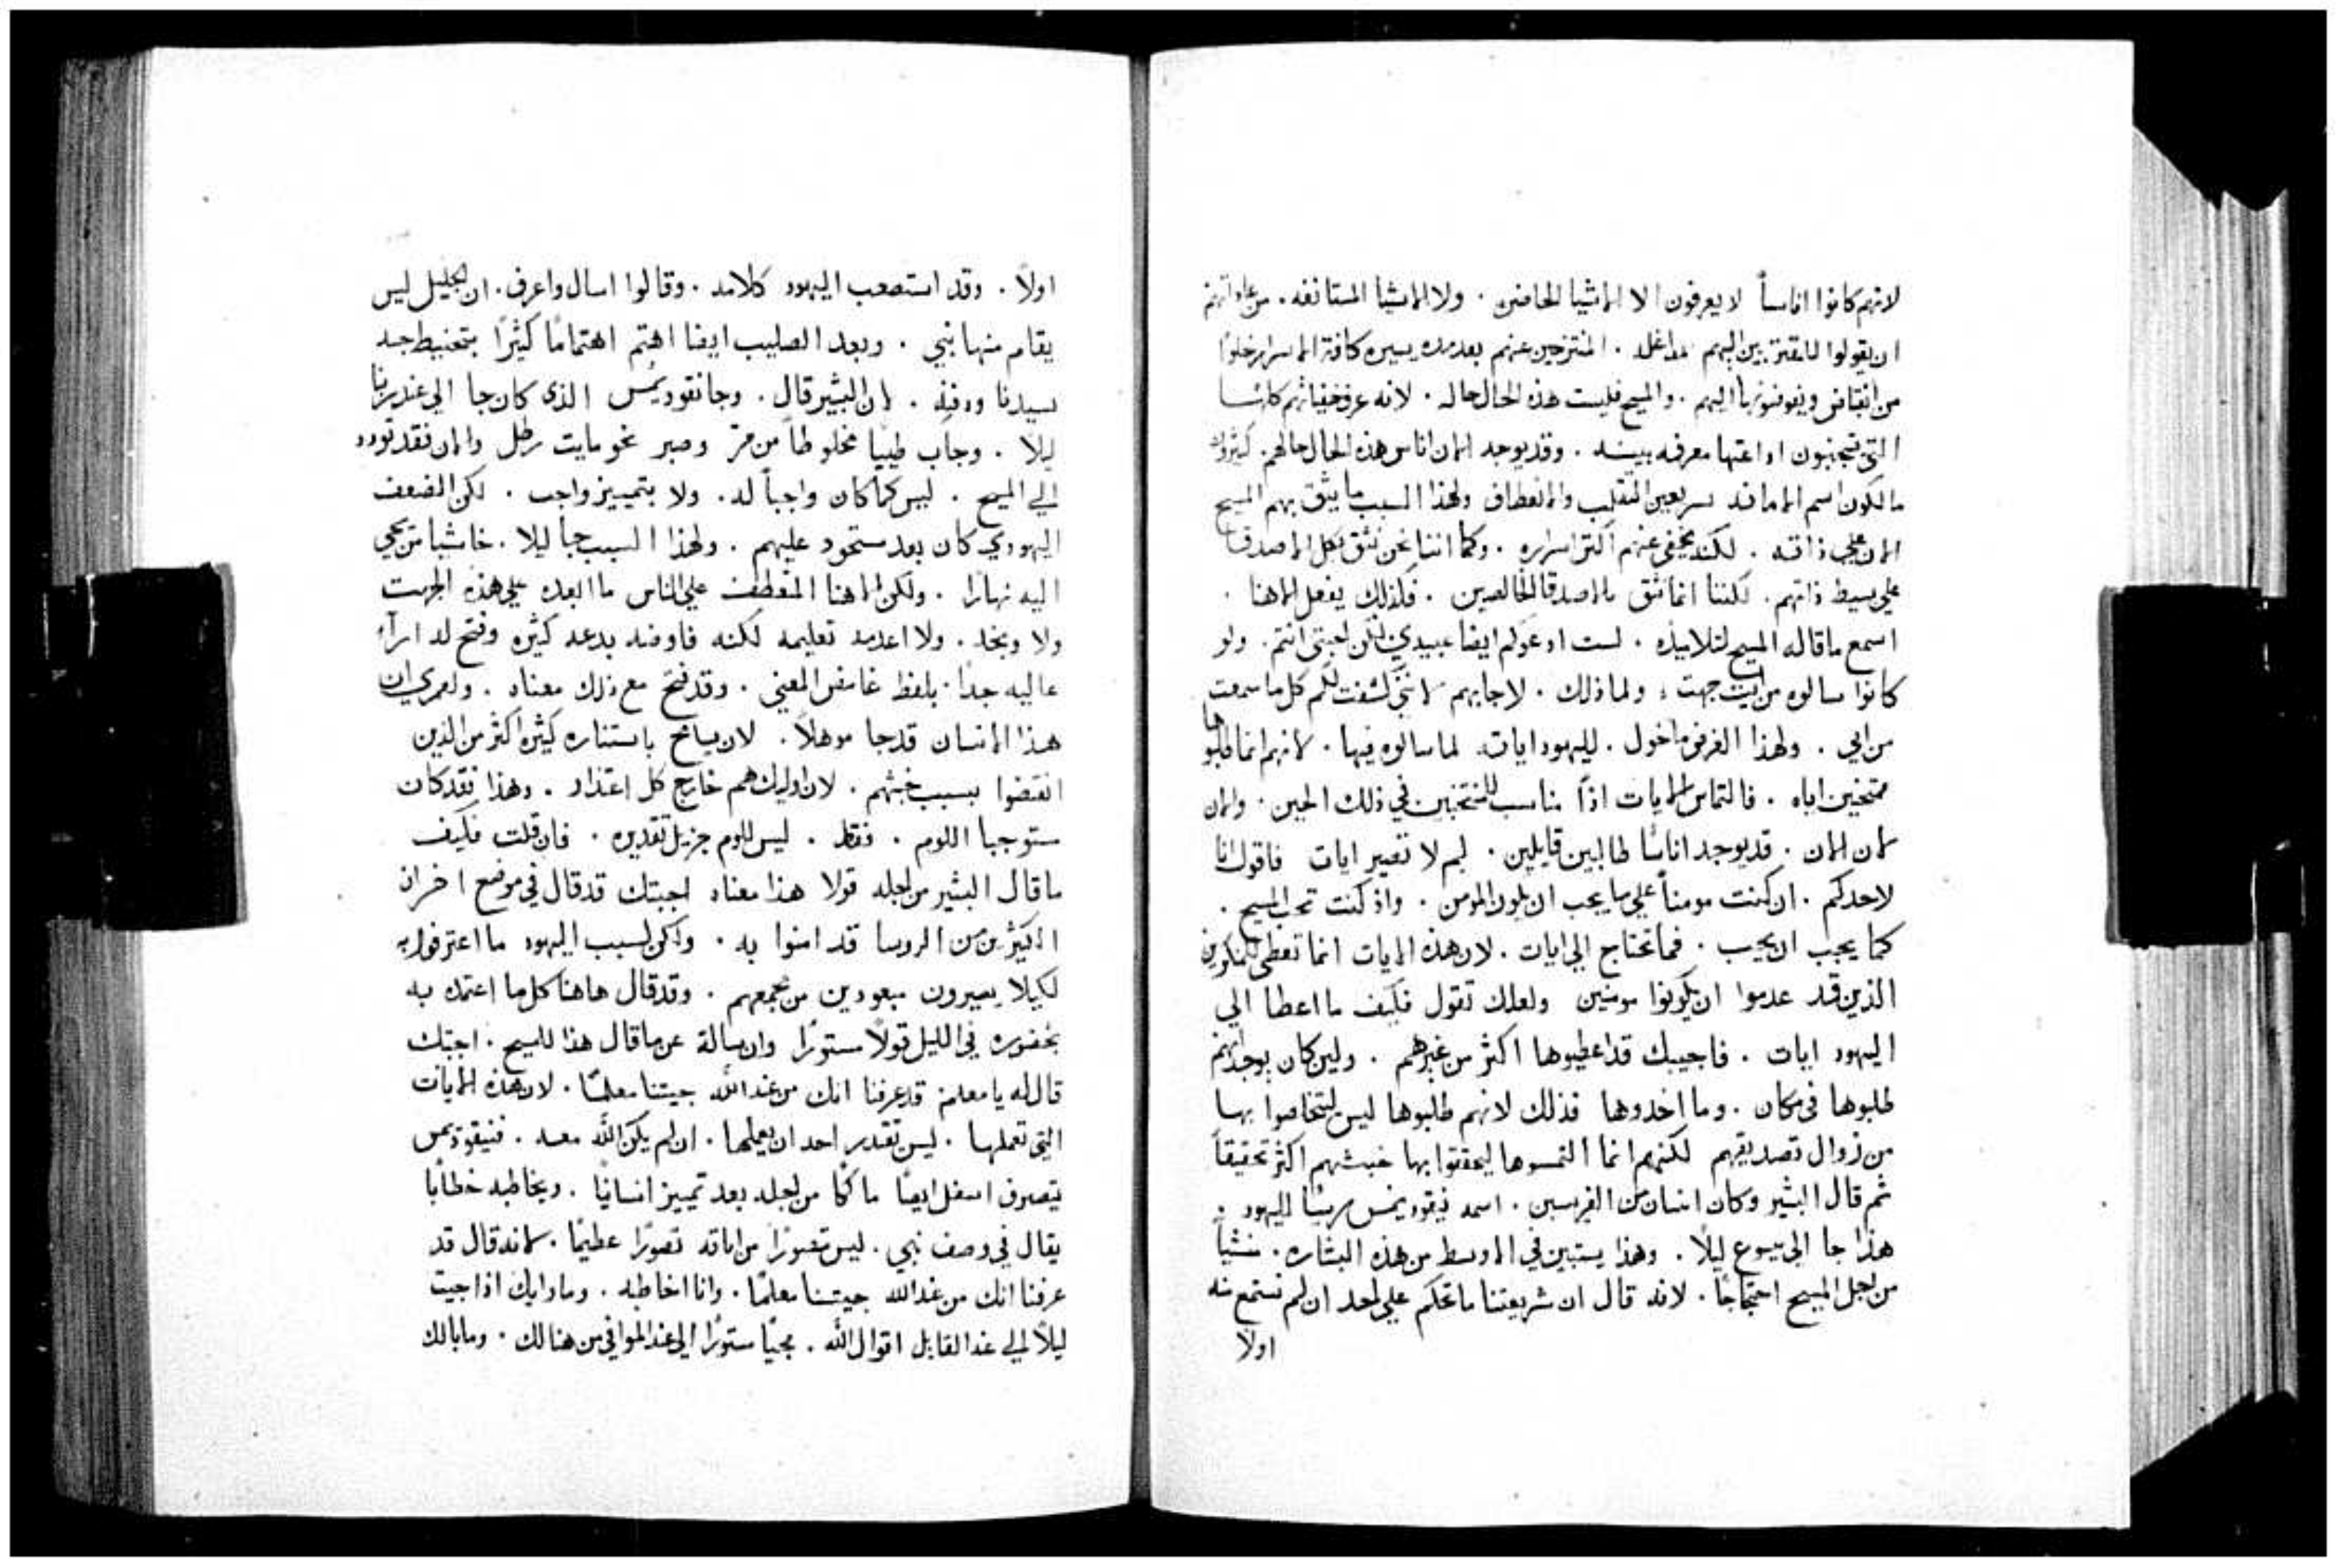 لانهم كانوا اناساً لا يعرفون الا الاشيا الحاضره . ولا الاشيا المستانفه . من عاداتهم
ان يقولوا للمقتربين اليهم بداغله . المنتزحين عنهم بعد مده يسيره كافة الاسرار خلوًا
من انقباض ويفوضونها اليهم . والمسيح فليست هذه الحال حاله . لانه عرف خفياتهم كلها
التي تتجنبون اذاعتها معرفه بينه . وقد يوجد الان اناس هذه الحال حالهم . كثيرون
مالكون اسم الامانه سريعين التقلب والانعطاف ولهذا السبب ما يثق بهم المسيح
الان علي ذاته . لكنه يخفي عنهم اكثر اسراره . وكما اننا نحن نثق بكل الاصدقا
علي بسيط ذاتهم . لكننا انما نثق بالاصدقا الخالصين . فكذلك يفعل الاهنا .
اسمع ما قاله المسيح لتلاميذه . لست ادعوكم ايضا عبيدي لكن احبتي انتم . ولو
كانوا سالوه من اية جهت . ولما ذلك . لاجابهم لانني كشفت لكم كل ما سمعت
من ابي . ولهذا الغرض ما خول . لليهود ايات لما سالوه فيها . لانهم انما طلبوها
ممتحنين اياه . فالتماس الايات اذاً مناسب للممتحنين في ذلك الحين . والان
لان الان . قد يوجد اناسًا طالبين قايلين . لم لا تصير ايات فاقول انا
لاحدكم . ان كنت مومناً علي ما يجب ان يكون المومن . واذ كنت تحب المسيح .
كما يجب ان يحب . فما تحتاج الي ايات . لان هذه الايات انما تعطي للماكرين
الذين قد عدموا ان يكونوا مومنين ولعلك تقول فكيف ما اعطا الي
اليهود ايات . فاجيبك قد اعطيوها اكثر من غيرهم . ولين كان يوجد انهم
طلبوها في مكان . وما اخدوها فذلك لانهم طلبوها ليس ليتخلصوا بها
من زوال تصديقهم لكنهم انما التمسوها ليحققوا بها خبثهم اكثر تحقيقاً
ثم قال البشير وكان انسان من الفريسين . اسمه نيقوديمس ريسًا لليهود .
هذا جا الي يسوع ليلاً . وهذا يستبين في الاوسط من هذه البشاره . منشياً
من اجل المسيح احتجاجًا . لانه قال ان شريعتنا ما تحكم علي احد ان لم تستمع منه
اولاً
اولاً . وقد استصعب اليهود كلامه . وقالوا اسال واعرف . ان الجليل ليس
يقام منها نبي . وبعد الصليب ايضا اهتم اهتمامًا كثيرًا بتحنيط جسد
سيدنا ودفنه . لان البشير قال . وجا نقوديمس الذي كان جا الي عند ربنا
ليلا . وجاب طيبًا مخلوطاً من مر وصبر نحو مايت رطل والان فقد تودد
الي المسيح . ليس كما كان واجباً له . ولا بتمييز واجب . لكن الضعف
اليهودي كان بعد مستحوذ عليهم . ولهذا السبب جا ليلا . خاشيا من يجي
اليه نهارًا . ولكن الاهنا المتعطف علي الناس ما ابعده علي هذه الجهت
ولا وبخه . ولا اعدمه تعليمه لكنه فاوضه بدعه كثيره وفتح له اراءً
عاليه جداً . بلفظ غامض المعني . وقد فتح مع ذلك معناه . ولعمري ان
هذا الانسان قد جا موهلاً . لان يسامح باستناره كثيره اكثر من الذين
انقضوا بسبب خبثهم . لان اوليك هم خارج كل اعتذار . وهذا فقد كان
ستوجبا اللوم . فقط . ليس للوم جزيل تقديره . فان قلت فكيف
ما قال البشير من اجله قولا هذا معناه اجبتك قد قال في موضع اخر ان
الكثيرين من الروسا قد امنوا به . ولكن لسبب اليهود ما اعترفوا به
لكيلا يصيرون مبعودين من مجمعهم . وقد قال هاهنا كل ما اعتمد به
بحضوره في الليل قولاً مستورًا وان سالت عن ما قال هذا للمسيح . اجبتك
قال له يا معلم قد عرفنا انك من عند الله جيتنا معلمًا . لان هذه الايات
التي تعملها . ليس تقدر احد ان يعملها . ان لم يكن الله معه . فنيقوديمس
يتصرف اسفل ايضًا ما كًا من اجله بعد تمييز انسانيًا . ويخاطبه خطابًا
يقال في وصف نبي . ليس تصورًا من اياته تصورًا عظيمًا . لانه قال قد
عرفنا انك من عند الله جيتنا معلمًا . وانا اخاطبه . وما رايك اذا جيت
ليلاً الي عند القايل اقوال الله . مجيًا مستورًا الي عند الموافي من هنالك . وما بالك